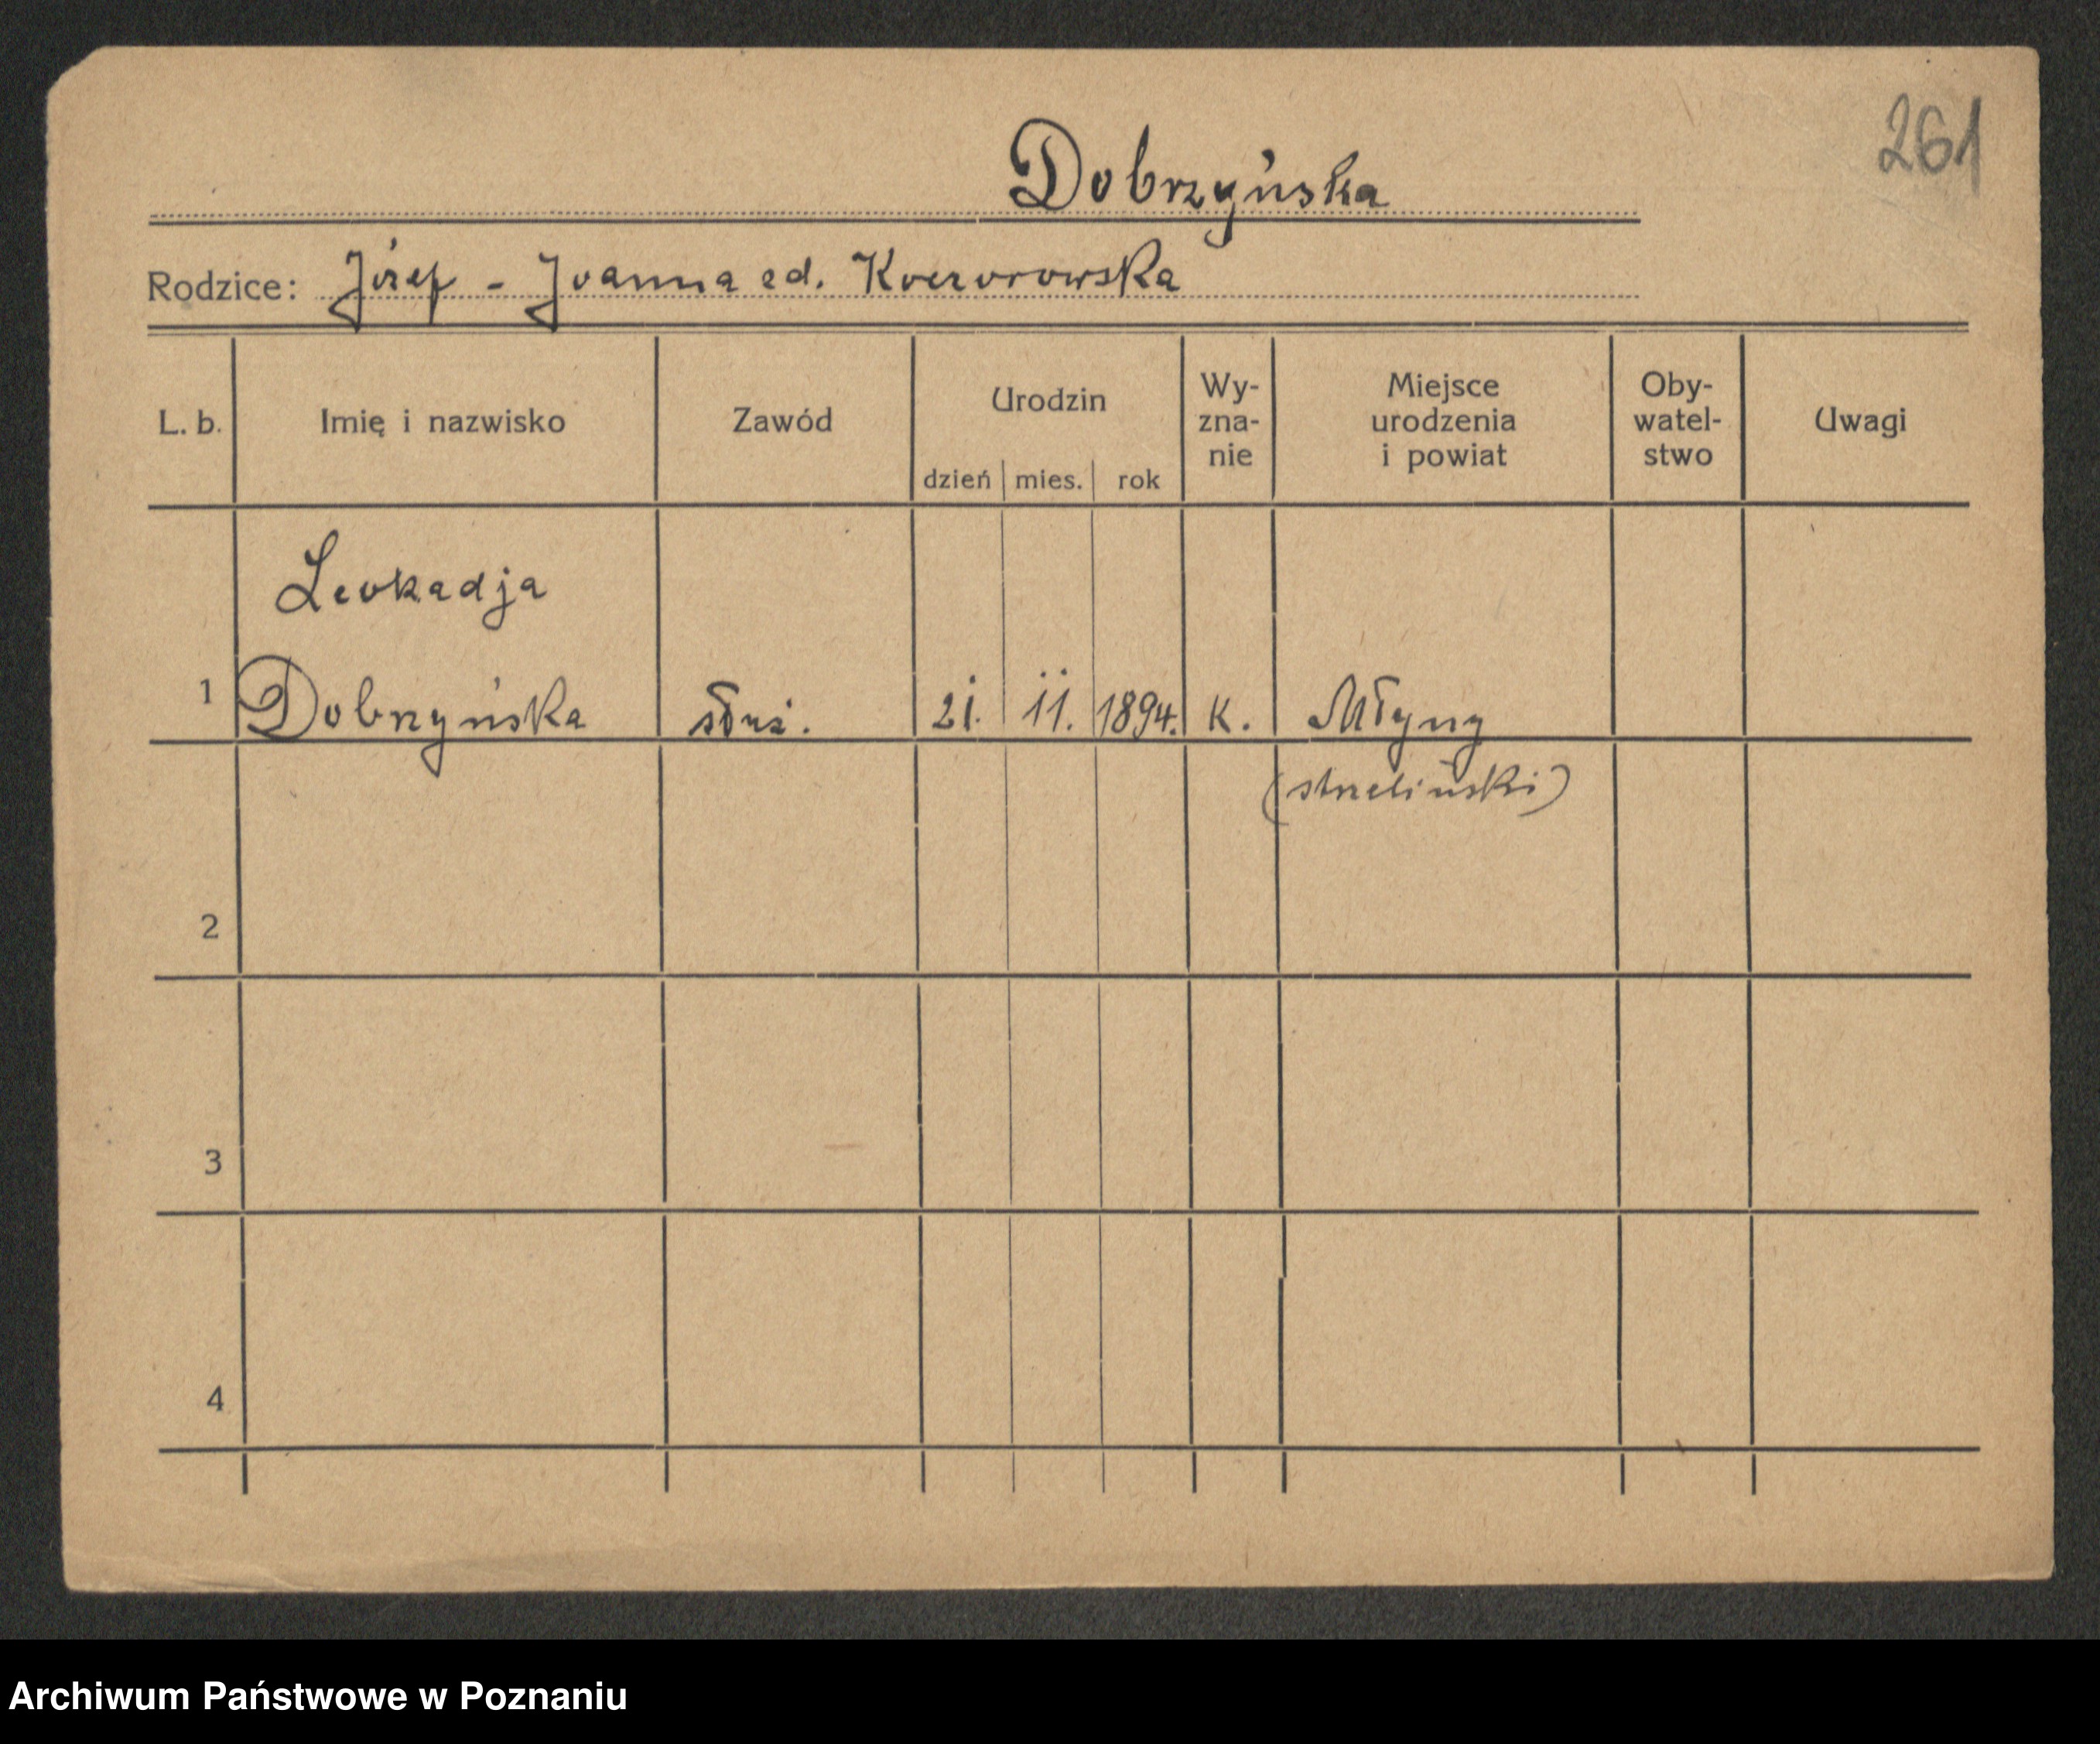 261
Dobrzyńska
Rodzice: Józef - Joanna zd. Koczorowska
L. b. Imię i nazwisko Zawód Urodzin dzień mies. rok Wy-zna-nie Miejsce urodzenia i powiat Oby-watel-stwo Uwagi
Leokadja
1 Dobrzyńska służ. 21. 11. 1894. K. Młyny
(strzeliński)
2
3
4
Archiwum Państwowe w Poznaniu